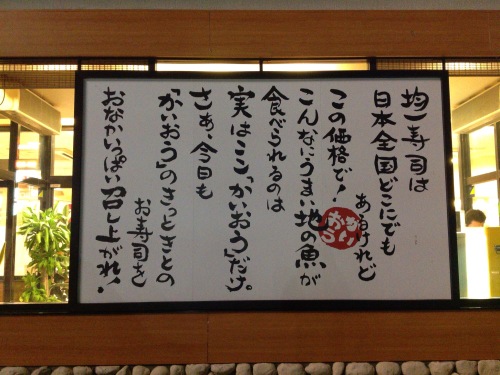 均一寿司は
日本全国どこにでも
あるけれど
この価格で!
こんなにうまい地の魚が
食べられるのは
実はここ「かいおう」だけ。
さぁ、今日も
「かいおう」のきっときとの
お寿司を
おなかいっぱい召し上がれ!